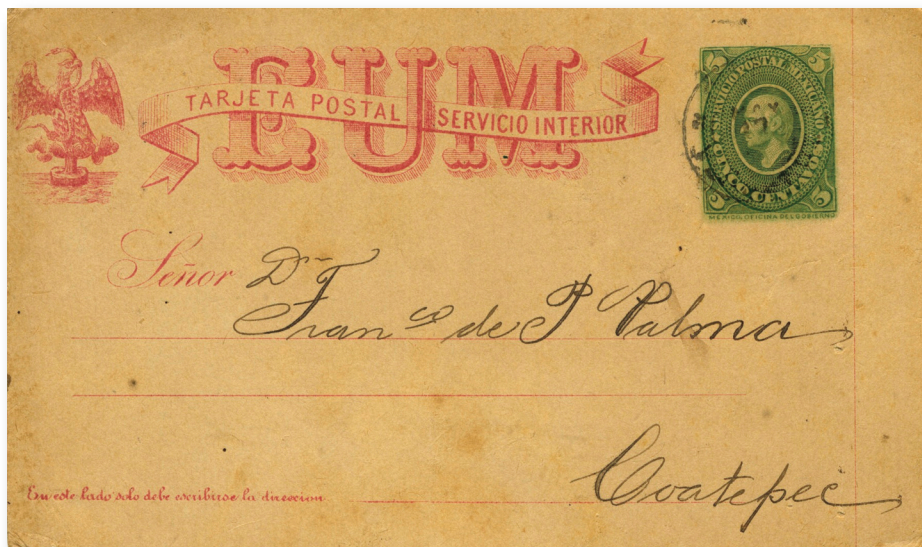 EUM
TARJETA POSTAL SERVICIO INTERIOR
5 5
SERVICIO POSTAL MEXICANO
CINCO CENTAVOS
5 5
MEXICO, OFICINA DEL GOBIERNO
Señor Dn
Franco de P Palma
Coatepec
En este lado solo debe escribirse la direccion